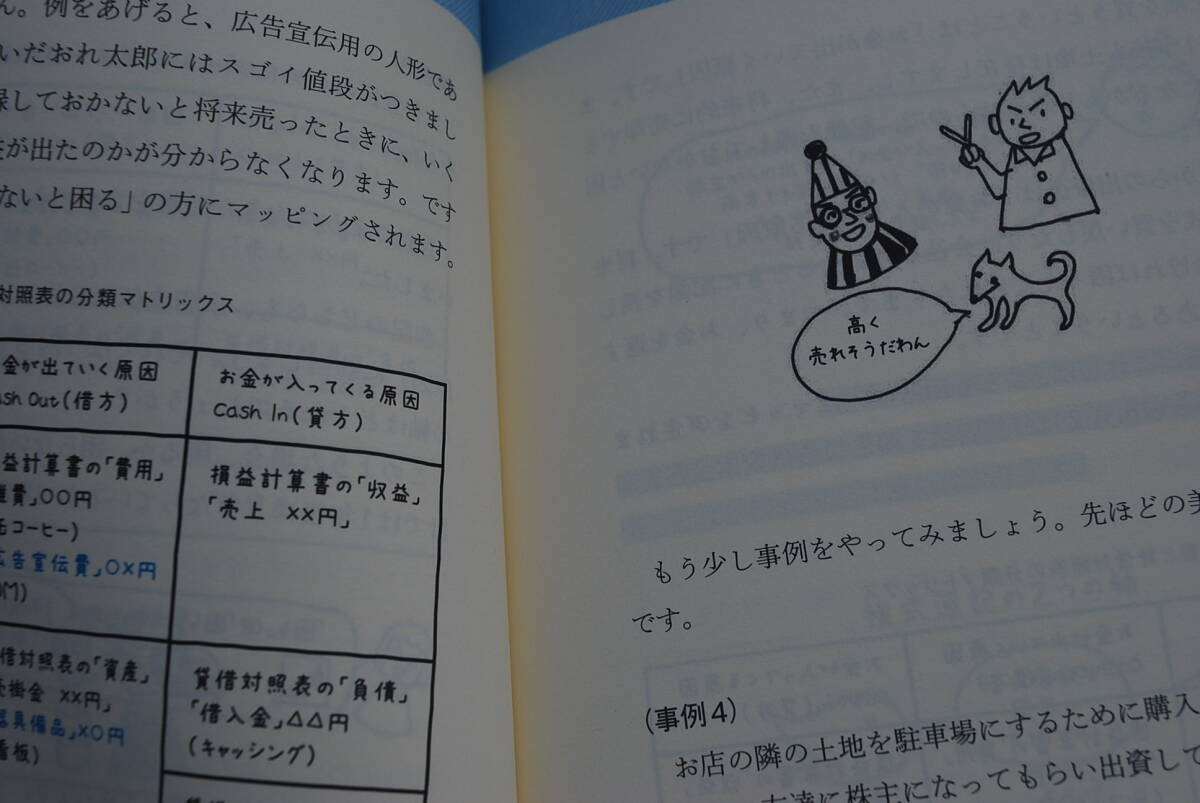 ん。例をあげると、広告宣伝用の人形であ
いだおれ太郎にはスゴイ値段がつきまし
録しておかないと将来売ったときに、いく
が出たのかが分からなくなります。です
ないと困る」の方にマッピングされます。
対照表の分類マトリックス
金が出ていく原因
ash Out(借方)
お金が入ってくる原因
Cash In(貸方)
益計算書の「費用」
費」〇〇円
缶コーヒー)
広告宣伝費」〇×円
DM)
損益計算書の「収益」
「売上 ××円」
借対照表の「資産」
売掛金 ××円」
器具備品」×〇円
看板)
貸借対照表の「負債」
「借入金」△△円
(キャッシング)
高く
売れそうだわん
もう少し事例をやってみましょう。先ほどの美
です。
(事例4)
お店の隣の土地を駐車場にするために購入
友達に株主になってもらい出資して